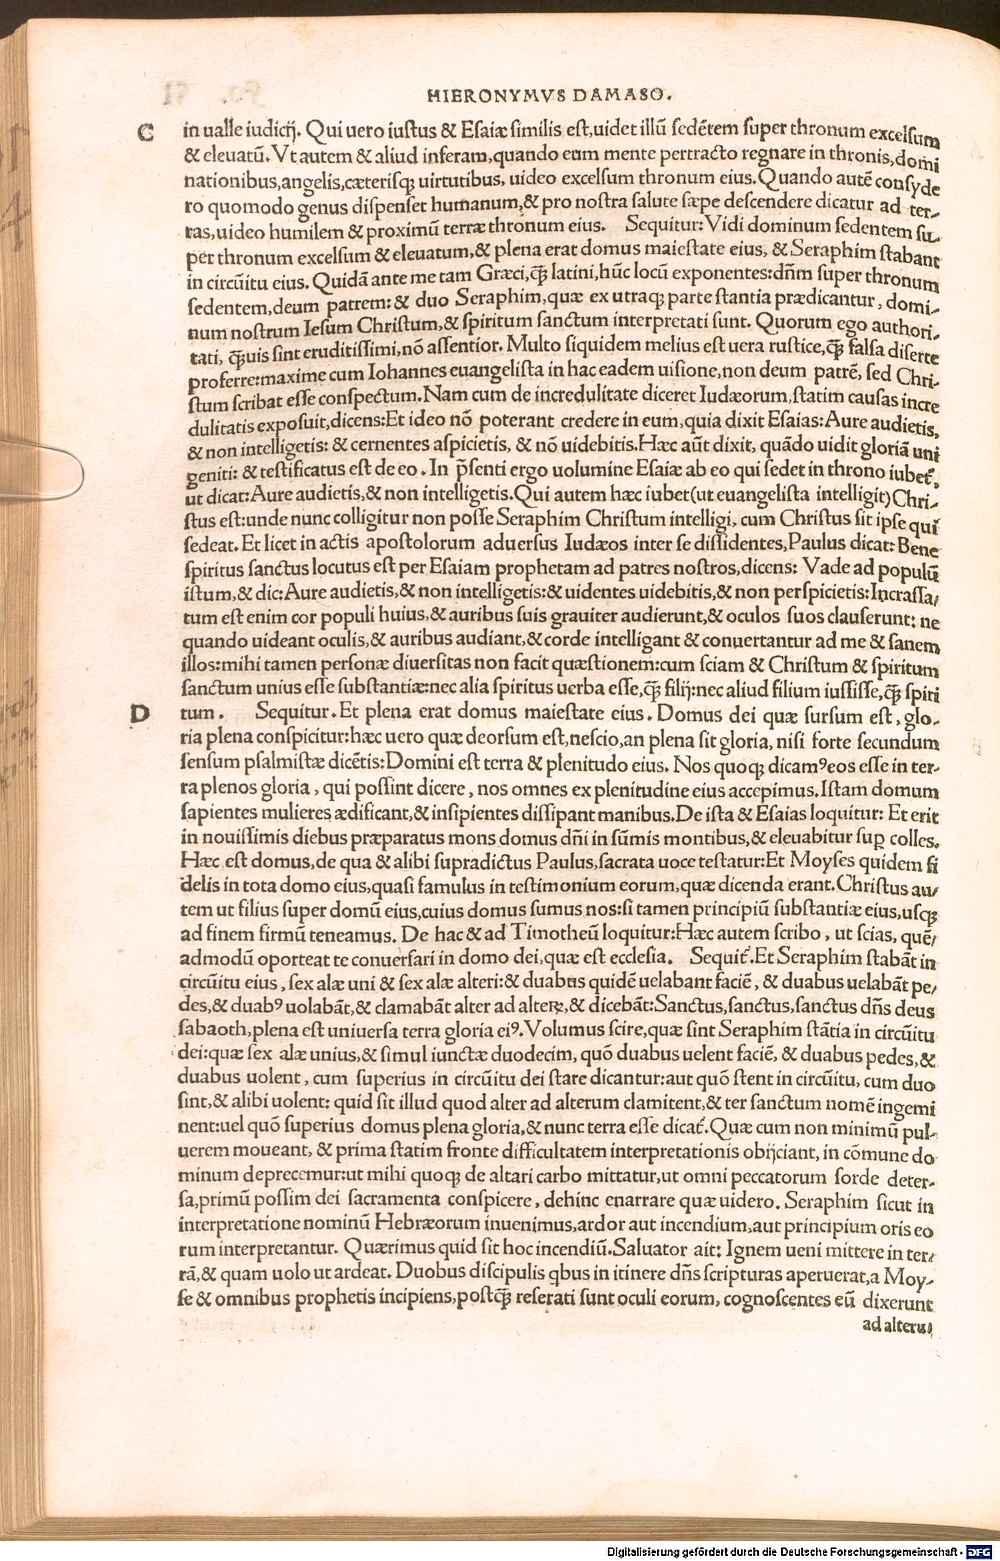 HIERONYMVS DAMASO.
C
in ualle iudicij. Qui uero iustus & Esaiæ similis est,uidet illũ sedẽtem super thronum excelsum
& eleuatũ. Vt autem & aliud inferam,quando eum mente pertracto regnare in thronis,domi
nationibus,angelis,cæterisq; uirtutibus, uideo excelsum thronum eius. Quando autẽ consyde
ro quomodo genus dispenset humanum,& pro nostra salute sæpe descendere dicatur ad ter-
ras,uideo humilem & proximũ terræ thronum eius. Sequitur: Vidi dominum sedentem su-
per thronum excelsum & eleuatum,& plena erat domus maiestate eius, & Seraphim stabant
in circũitu eius. Quidã ante me tam Græci,q̃ latini,hũc locũ exponentes:dñm super thronum
sedentem,deum patrem: & duo Seraphim,quæ ex utraq; parte stantia prædicantur, domi-
num nostrum Iesum Christum,& spiritum sanctum interpretati sunt. Quorum ego authori-
tati, q̃uis sint eruditissimi,nõ assentior. Multo siquidem melius est uera rustice,q̃ falsa diserte
proferre:maxime cum Iohannes euangelista in hac eadem uisione,non deum patrẽ, sed Chri-
stum scribat esse conspectum. Nam cum de incredulitate diceret Iudæorum,statim causas incre
dulitatis exposuit,dicens:Et ideo nõ poterant credere in eum,quia dixit Esaias: Aure audietis,
& non intelligetis: & cernentes aspicietis, & nõ uidebitis.Hæc aũt dixit, quãdo uidit gloriã uni
geniti: & testificatus est de eo. In p̃senti ergo uolumine Esaiæ ab eo qui sedet in throno iubet̃,
ut dicat: Aure audietis,& non intelligetis.Qui autem hæc iubet(ut euangelista intelligit) Chri-
stus est:unde nunc colligitur non posse Seraphim Christum intelligi, cum Christus sit ipse qui
sedeat. Et licet in actis apostolorum aduersus Iudæos inter se dissidentes,Paulus dicat: Bene
spiritus sanctus locutus est per Esaiam prophetam ad patres nostros,dicens: Vade ad populũ
istum,& dic: Aure audietis,& non intelligetis:& uidentes uidebitis,& non perspicietis: Incrassa/
tum est enim cor populi huius,& auribus suis grauiter audierunt,& oculos suos clauserunt: ne
quando uideant oculis,& auribus audiant,& corde intelligant & conuertantur ad me & sanem
illos:mihi tamen personæ diuersitas non facit quæstionem:cum sciam & Christum & spiritum
sanctum unius esse substantiæ:nec alia spiritus uerba esse,q̃ filij:nec aliud filium iussisse,q̃ spiri
D
tum. Sequitur.Et plena erat domus maiestate eius. Domus dei quæ sursum est, glo-
ria plena conspicitur:hæc uero quæ deorsum est,nescio,an plena sit gloria, nisi forte secundum
sensum psalmistæ dicẽtis: Domini est terra & plenitudo eius. Nos quoq; dicamꝰ eos esse in ter-
ra plenos gloria, qui possint dicere, nos omnes ex plenitudine eius accepimus. Istam domum
sapientes mulieres ædificant,& insipientes dissipant manibus.De ista & Esaias loquitur: Et erit
in nouissimis diebus præparatus mons domus dñi in sũmis montibus,& eleuabitur sup colles.
Hæc est domus,de qua & alibi supradictus Paulus,sacrata uoce testatur:Et Moyses quidem fi
delis in tota domo eius,quasi famulus in testimonium eorum,quæ dicenda erant. Christus au/
tem ut filius super domũ eius,cuius domus sumus nos:si tamen principiũ substantiæ eius,usq;
ad finem firmũ teneamus. De hac & ad Timotheũ loquitur: Hæc autem scribo, ut scias, quẽ/
admodũ oporteat te conuersari in domo dei,quæ est ecclesia. Sequit̃.Et Seraphim stabãt in
circũitu eius, sex alæ uni & sex alæ alteri:& duabus quidẽ uelabant faciẽ, & duabus uelabãt pe/
des,& duabꝰ uolabãt,& clamabãt alter ad alteꝝ,& dicebãt:Sanctus,sanctus,sanctus dñs deus
sabaoth,plena est uniuersa terra gloria eiꝰ.Volumus scire,quæ sint Seraphim stãtia in circũitu
dei:quæ sex alæ unius,& simul iunctæ duodecim, quõ duabus uelent faciẽ, & duabus pedes,&
duabus uolent, cum superius in circũitu dei stare dicantur:aut quõ stent in circũitu, cum duo
sint,& alibi uolent: quid sit illud quod alter ad alterum clamitent,& ter sanctum nomẽ ingemi
nent:uel quõ superius domus plena gloria,& nunc terra esse dicat̃.Quæ cum non minimũ pul-
uerem moueant, & prima statim fronte difficultatem interpretationis obijciant, in cõmune do
minum deprecemur:ut mihi quoq; de altari carbo mittatur,ut omni peccatorum sorde deter-
sa,primũ possim dei sacramenta conspicere, dehinc enarrare quæ uidero. Seraphim sicut in
interpretatione nominũ Hebræorum inuenimus,ardor aut incendium,aut principium oris eo
rum interpretantur. Quærimus quid sit hoc incendiũ.Saluator ait: Ignem ueni mittere in ter/
rã,& quam uolo ut ardeat. Duobus discipulis qbus in itinere dñs scripturas aperuerat,a Moy-
se & omnibus prophetis incipiens,postq̃ reserati sunt oculi eorum, cognoscentes eũ dixerunt
ad alterũ:
Digitalisierung gefördert durch die Deutsche Forschungsgemeinschaft - DFG